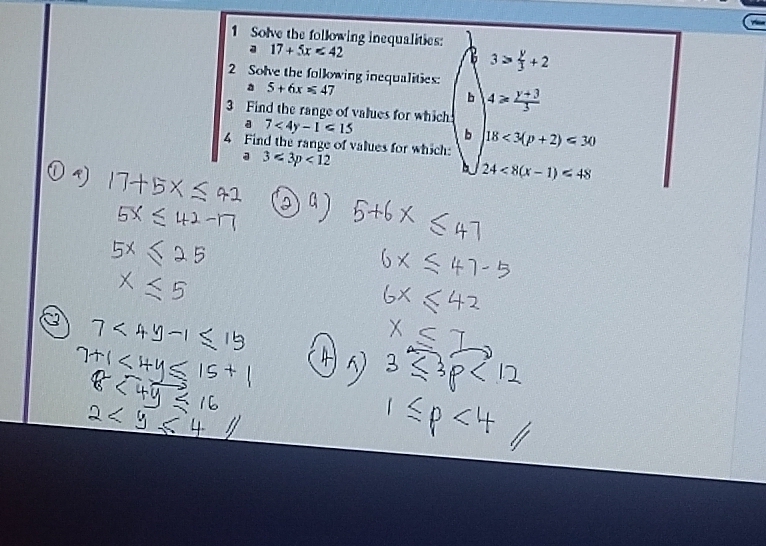 1 Solve the following inequalities:
a 17 + 5x ⩽ 42
b 3 ⩾ y/3 + 2
2 Solve the following inequalities:
a 5 + 6x ⩽ 47
b 4 ⩾ (y + 3)/3
3 Find the range of values for which:
a 7 < 4y − 1 ⩽ 15
b 18 < 3(p + 2) ⩽ 30
4 Find the range of values for which:
a 3 ⩽ 3p < 12
b 24 < 8(x − 1) ⩽ 48
① a) 17+5x ≤ 42
5x ≤ 42-17
5x ≤ 25
x ≤ 5
② a) 5+6x ≤ 47
6x ≤ 47-5
6x ≤ 42
x ≤ 7
③ 7 < 4y-1 ≤ 15
7+1 < 4y ≤ 15+1
8 < 4y ≤ 16
2 < y ≤ 4 //
④ a) 3 ≤ 3p < 12
1 ≤ p < 4 //